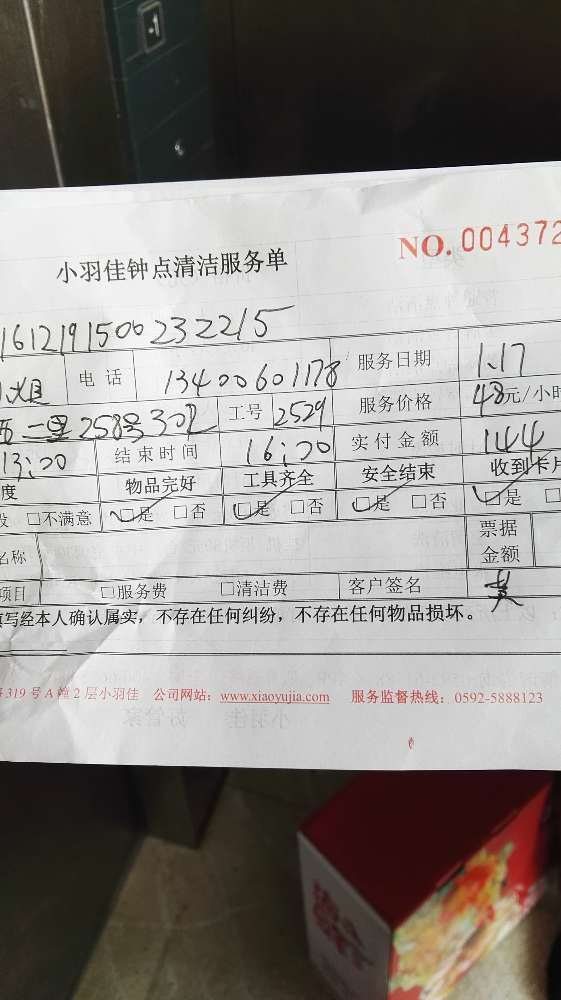 NO. 004372
小羽佳钟点清洁服务单
1612191500232215
姐 电话 13400601178 服务日期 1.17
西一里258号302 工号 2529 服务价格 48元/小时
13:00 结束时间 16:00 实付金额 144
度 物品完好 工具齐全 安全结束 收到卡片
□不满意 □是 □否 □是 □否 □是 □否 □是
名称 票据金额
项目 □服务费 □清洁费 客户签名
填写经本人确认属实，不存在任何纠纷，不存在任何物品损坏。
319号A幢2层小羽佳 公司网站：www.xiaoyujia.com 服务监督热线：0592-5888123